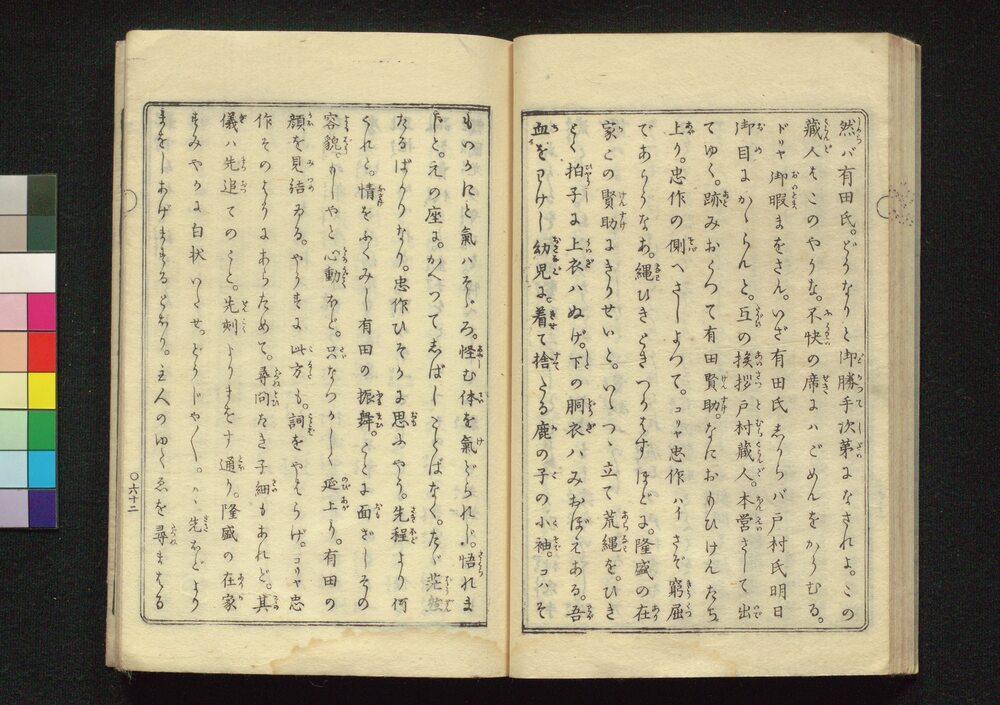 然バ有田氏。どうなりと御勝手次第になされよ。この
藏人はこのやうな。不快の席にハごめんをかうむる。
ドリヤ御暇まをさん。いざ有田氏しからバ戸村氏明日
御目にかゝらんと。互の挨拶戸村藏人。本営さして出
てゆく。跡みおくつて有田賢助。なにおもひけんたち
上り。忠作の側へさしよつて。コリヤ忠作ハイさぞ窮屈
であらうなあ。縄ひきときつかはすほどに。隆盛の在
家この賢助にきりせいと。いゝつゝ立て荒縄を。ひき
とく拍子に上衣ハぬげ。下の胴衣ハみおぼえある。吾
血をわけし幼児に。着て捨たる鹿の子の小袖。コハそ
もいかにと氣ハそゞろ。怪む体を氣どられじ。悟れま
じと。元の座に。かへつてしばしことばなく。たゞ茫然
たるばかりなり。忠作ひそかに思ふやう。先程より何
くれと。情をふくみし有田の振舞。ことに面ざしその
容貌もしやと心動けど。只なつかしく延上り。有田の
顔を見結ゐる。やうすに此方も。詞をやはらげ。コリヤ忠
作そのはうにあらためて。尋問たき子細もあれど。其
儀ハ先追てのこと。先刻よりまをす通り。隆盛の在家
すみやかに白状いたせ。どうじや〳〵。ハヽ先ほどより
まをしあげまするとほり。主人のゆくゑを尋にまゐる
〇六十二